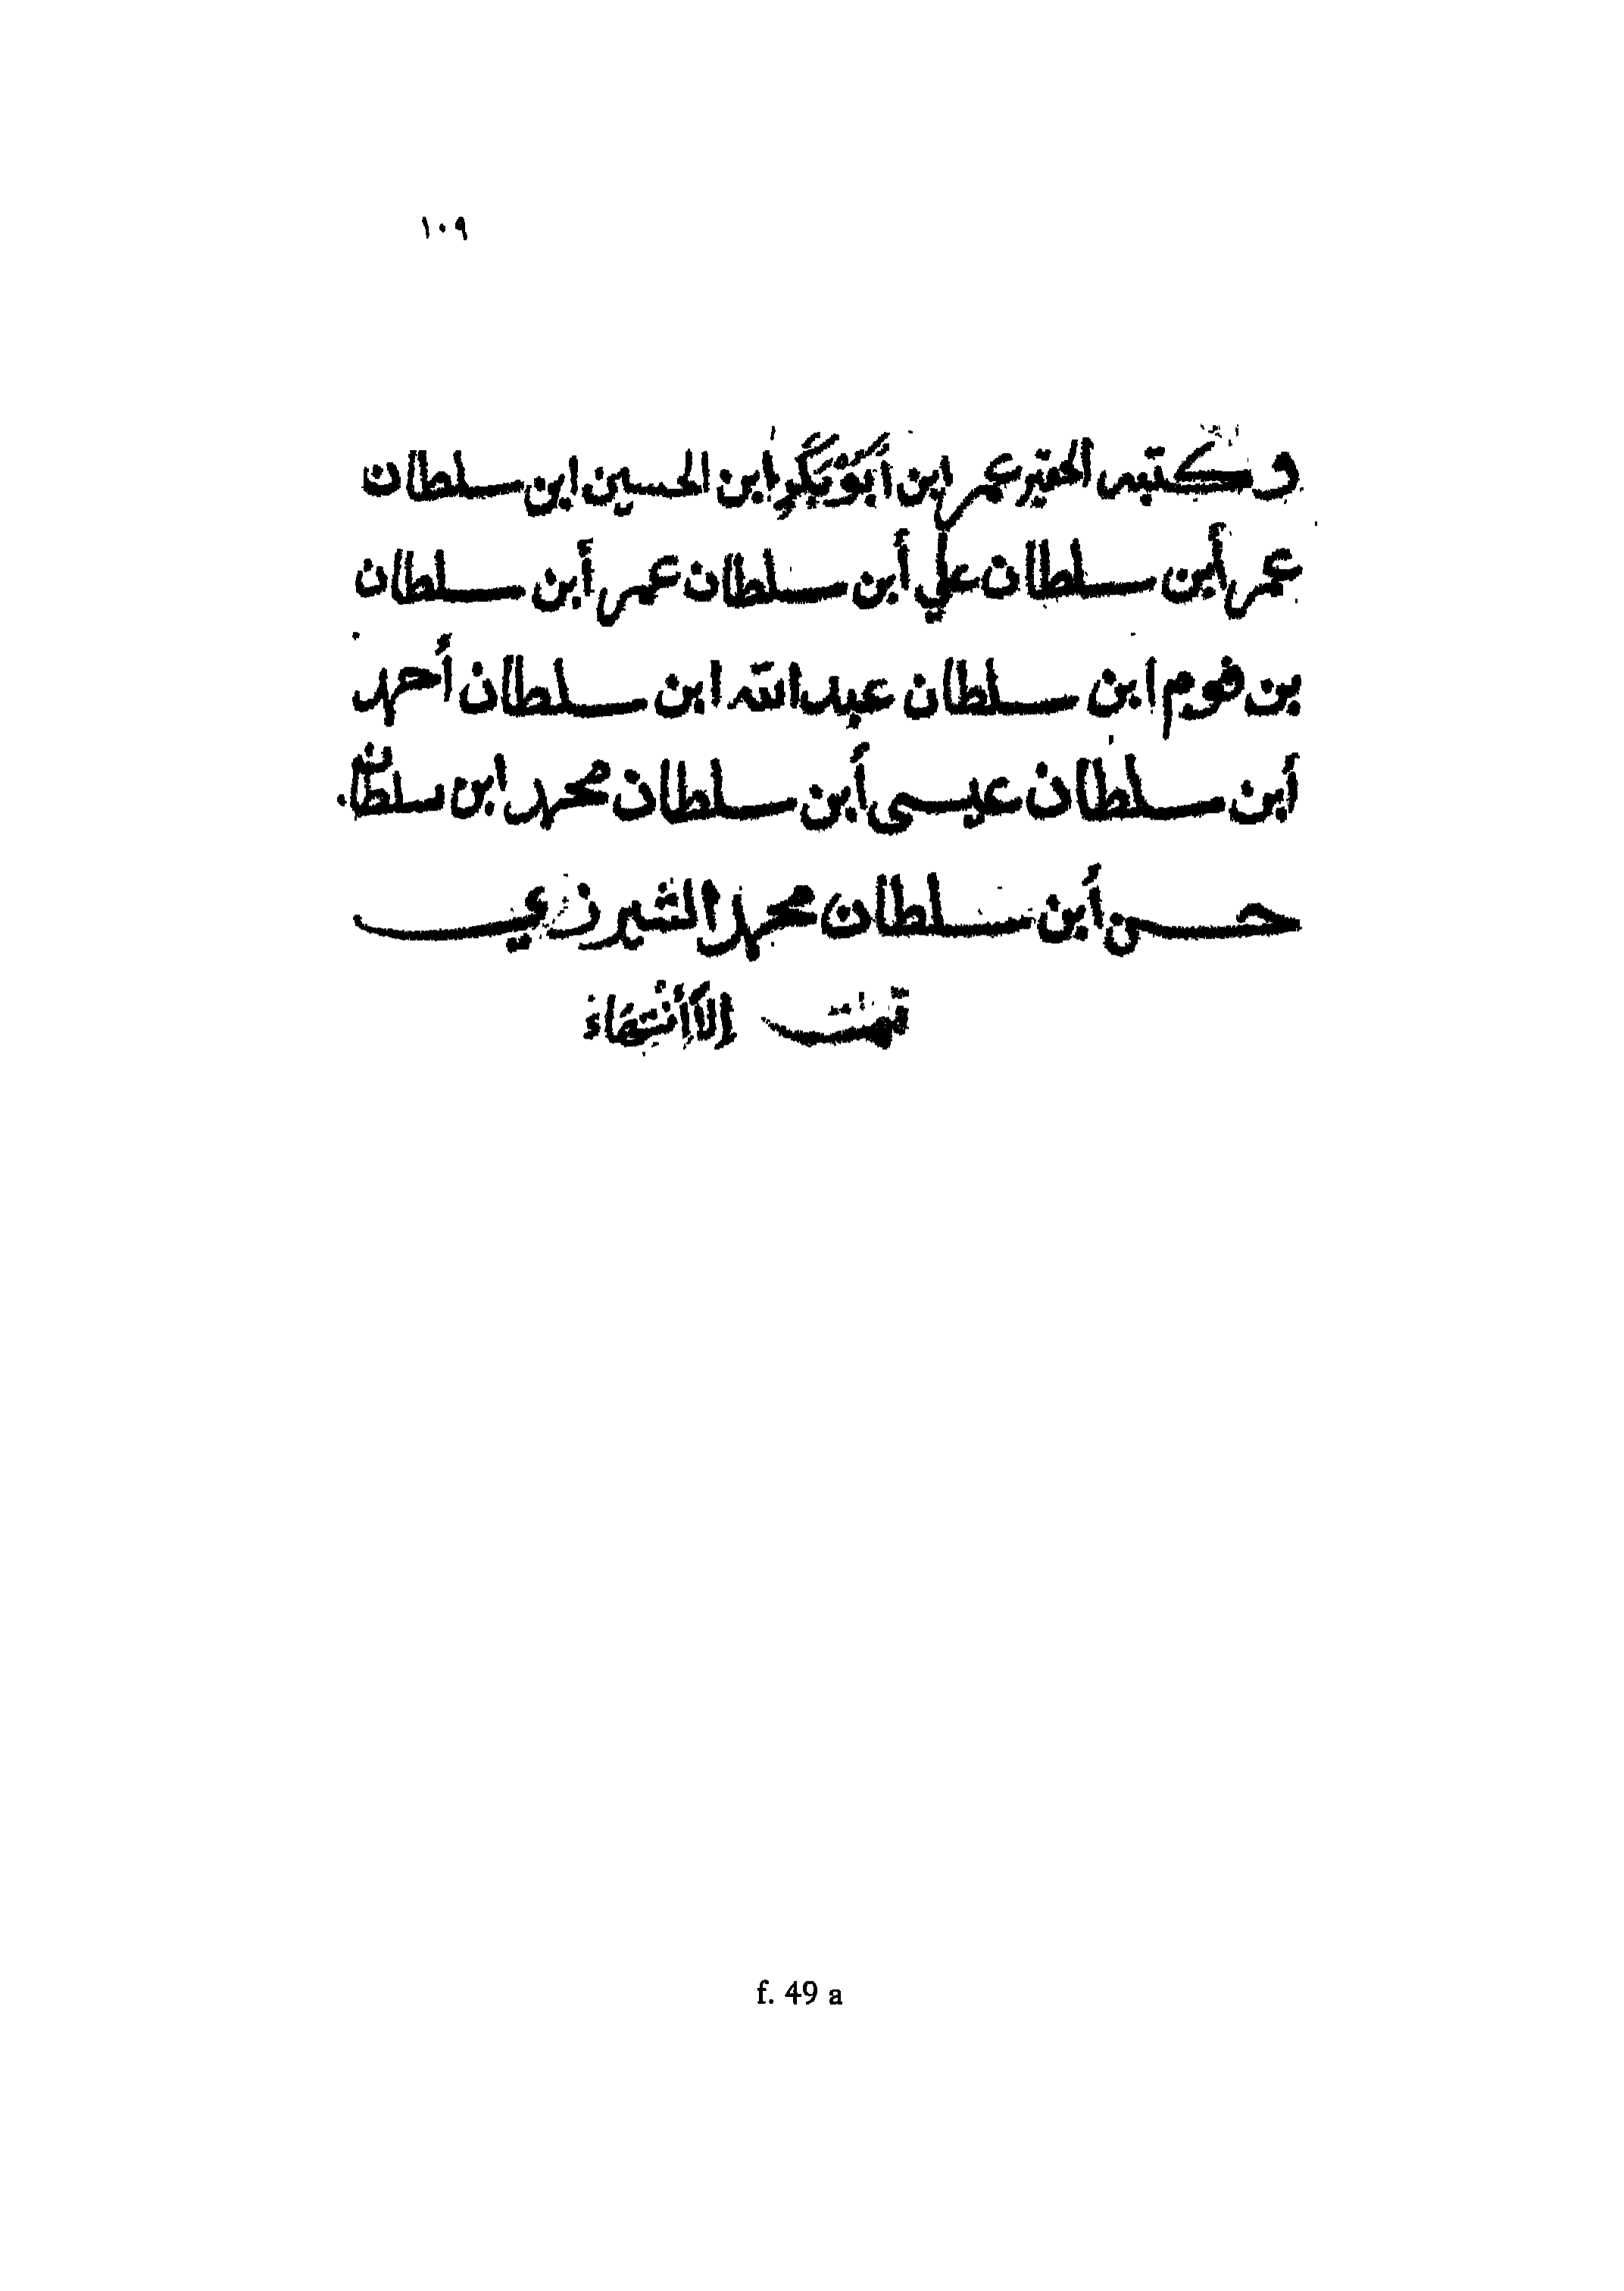 ١٠٩
وكتبه الحقير عمر ابن أَبُوْبَكَرٍ ابن الحسين ابن سلطان
عمر أبن سلطان علي أبن سلطان عمر أبن سلطان
بن فوم ابن سلطان عبد الله ابن سلطان أحمد
أبن سلطان عيسى أبن سلطان محمد ابن سلطان
حسن أبن سلطان محمد الشيرزي
تمت إلاَأنْتِهَاءَ
f. 49 a